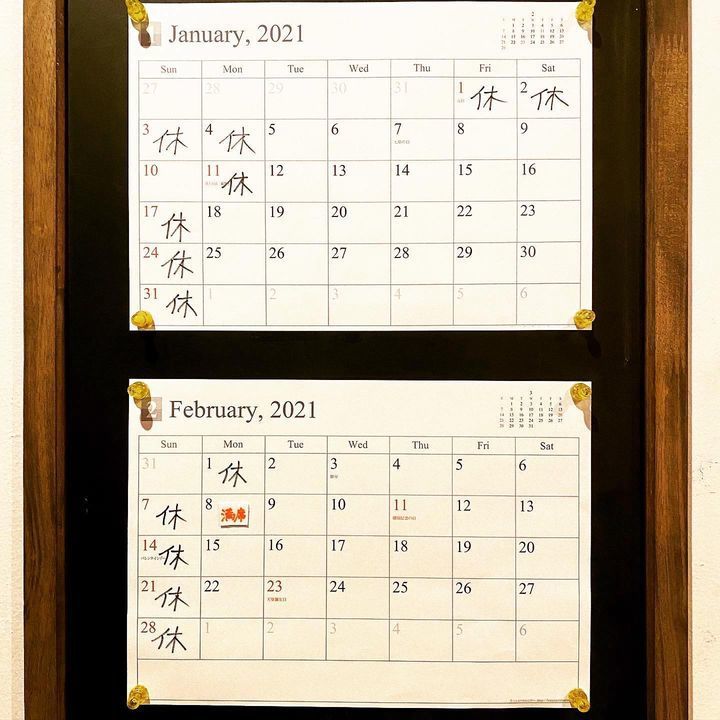 1 January, 2021
2
Sun Mon Tue Wed Thu Fri Sat
27 28 29 30 31 1 休 2 休
3 休 4 休 5 6 7 8 9
10 11 休 12 13 14 15 16
17 休 18 19 20 21 22 23
24 休 25 26 27 28 29 30
31 休 1 2 3 4 5 6
2 February, 2021
3
Sun Mon Tue Wed Thu Fri Sat
31 1 休 2 3 4 5 6
節分
7 休 8 満席 9 10 11 12 13
建国記念の日
14 休 15 16 17 18 19 20
バレンタインデー
21 休 22 23 24 25 26 27
天皇誕生日
28 休 1 2 3 4 5 6